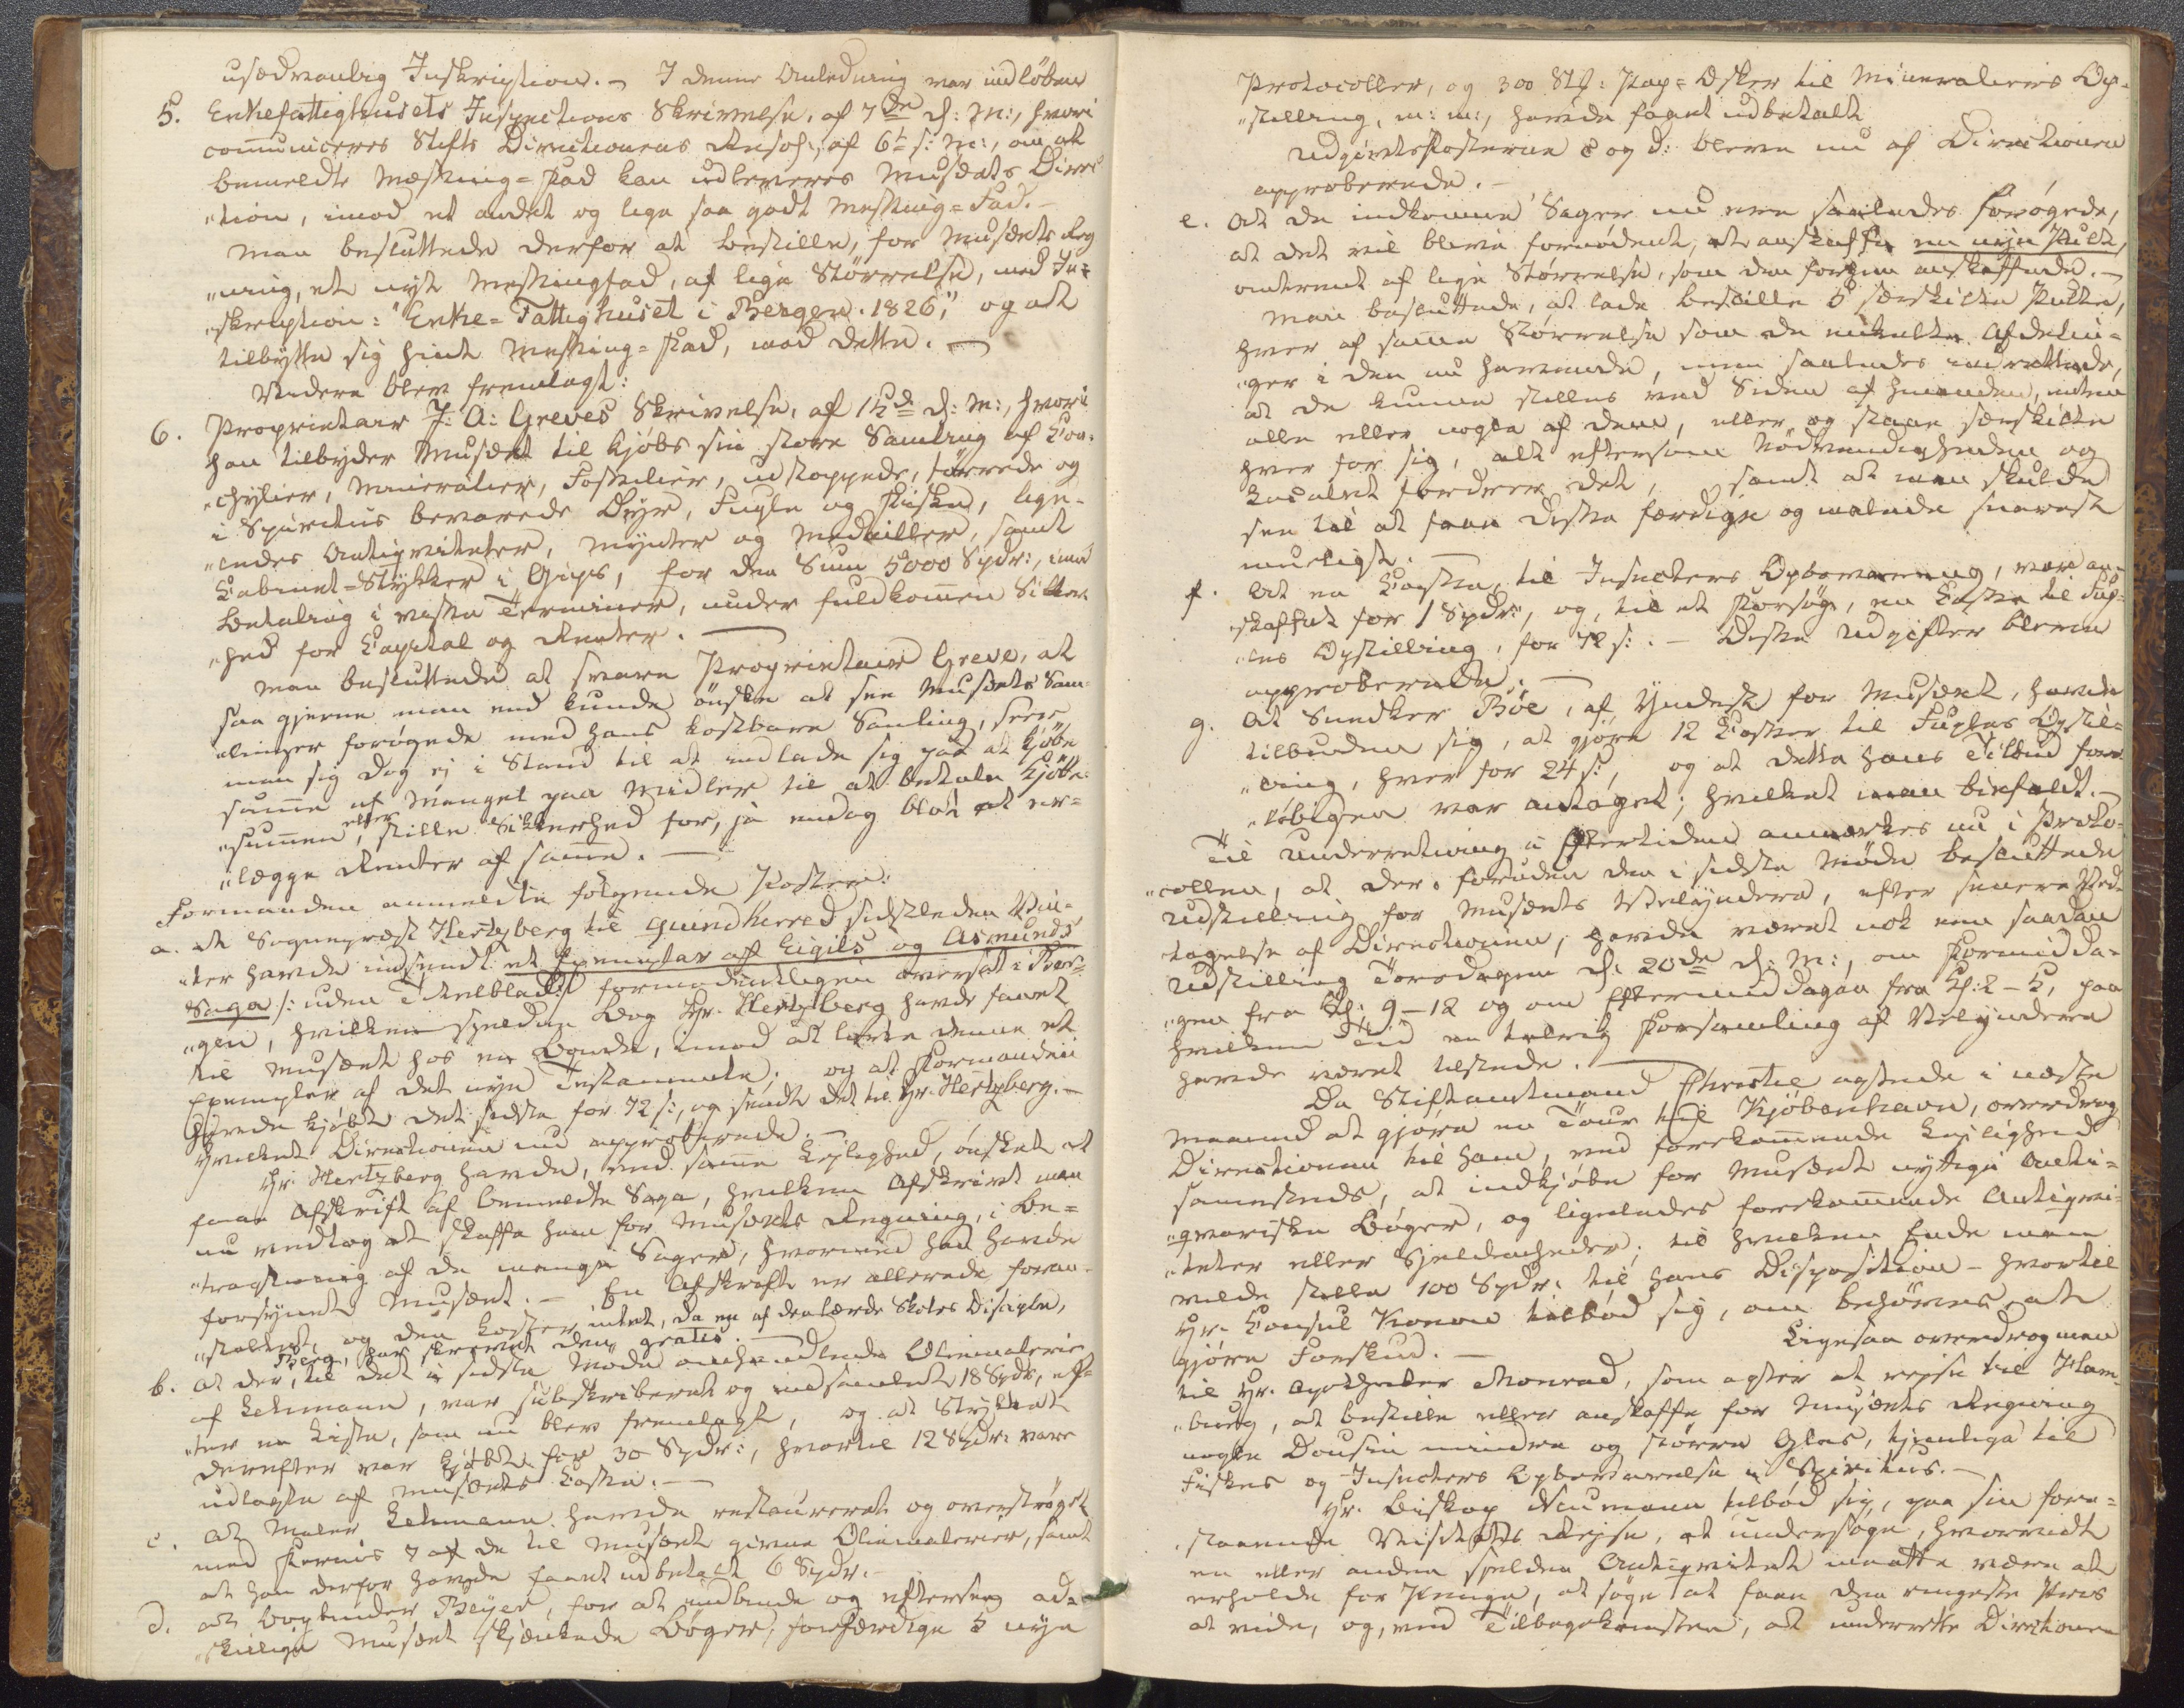 usædvanlig Inskription. – I denne Anledning var indløben
5. Enkefattighusets Inspections Skrivelse, af 7de d: M:, hvori
communiceres Stifts Directionens Resol:, af 6t s: M:, om at
bemeldte Messing-Fad kan udleveres Musæets Direc-
"tion, imod et andet og lige saa godt Messing-Fad. –
Man besluttede derfor at bestille, for Musæets Reg-
"ning, et nyt Messingfad, af lige Størrelse, med In-
"skription: "Enke-Fattighuset i Bergen. 1826", og at
tilbytte sig hint Messing-Fad, mod dette. –
Videre blev fremlagt:
6. Proprietair J: A: Greves Skrivelse, af 12de d: M:, hvori
han tilbyder Musæet til Kjøbs sin store Samling af Con-
"chylier, Mineralier, Fossilier, udstoppede, tørrede og
i Spiritus bevarede Dyr, Fugle og Fiske, lige-
"ledes Antiqviteter, Mynter og Medailler, samt
Cabinet-Stykker i Gips, for den Sum 5000 Spdr:, imod
Betaling i visse Terminer, under fuldkommen Sikker-
"hed for Capital og Renter. –
Man besluttede at svare Proprietair Greve, at
saa gjerne man end kunde ønske at see Musæets Sam-
"linger forøgede med hans kostbare Samling, seer
man sig dog ej i Stand til at indlade sig paa at kjøbe
samme af Mangel paa Midler til at betale Kjøbe-
"summen, eller stille Sikkerhed for, ja endog blot at er-
"lægge Renter af samme. –
Formanden anmeldte følgende Poster:
a. At Sognepræst Hertzberg til Qvindherred sidstleden Vin-
"ter havde indsendt et Exemplar af Eigils og Asmunds
Saga /: uden Titelblad :/ formodentligen oversat i Ber-
"gen, hvilken sjeldne Bog Hr. Hertzberg havde faaet
til Musæet hos en Bonde, imod at love denne et
Exemplar af det nye Testamente; og at Formanden
havde kjøbt det sidste for 72 s:, og sendt det til Hr. Hertzberg. –
Hvilket Directionen nu approberede. –
Hr. Hertzberg havde, ved samme Leilighed, ønsket at
faae Afskrift af bemeldte Saga, hvilken Afskrivt man
nu vedtog at skaffe ham for Musæets Regning, i Be-
"tragtning af de mange Sager, hvormed han havde
forsynet Musæet. – En Afskrift er allerede foran-
"staltet, og den koster intet, da en af den lærde Skoles Disciple,
Berg, har skrevet den gratis. –
b. At der, til det i sidste Møde omhandlende Oliemalerie
af Lehmann, var subskriberet og indsamlet 18 Spdr, ef-
"ter en Liste, som nu blev fremlagt, og at Stykket
derefter var kjøbt for 30 Spdr:, hvortil 12 Spdr: vare
udlagte af Musæets Casse. –
c. At Maler Lehmann havde restaureret og overstrøget
med Fernis 7 af de til Musæet givne Oliemalerier, samt
at han derfor havde faaet udbetalt 6 Spdr. –
d. At Bogbinder Beyer, for at indbinde og eftersee ad-
"skillige Musæet skjænkede Bøger, forfærdige 3 nye
Protocoller, og 300 Stk: Pap-Æsker til Mineraliers Op-
"stilling, m: m:, havde faaet udbetalt
Udgivtsposterne c og d: bleve nu af Directionen
approberede. –
e. At de indkomne Sager nu ere saaledes forøgede,
at det vil blive fornødent, at anskaffe en nye Pult,
omtrent af lige Størrelse, som den forhen anskaffede. –
Man besluttede, at lade bestille 5 særskilte Pulte,
hver af samme Størrelse som de enkelte Afdelin-
"ger i den nu havende, men saaledes indrettede,
at de kunne stilles ved Siden af hinanden, enten
alle eller nogle af dem, eller og staae særskilte
hver for sig, alt eftersom Nødvendigheden og
Localet fordrer det, samt at man skulde
see til at faae disse færdige og malede snarest
mueligt. –
f. At en Casse, til Insecters Opbevaring, var an-
"skaffet for 1 Spdr:, og, til et Forsøg, en Casse til Fug-
"les Opstilling, for 72 s:. – Disse Udgifter bleve
approberede. –
g. At Snedker Böe, af Yndest for Musæet, havde
tilbuden sig, at gjøre 12 Casser til Fugles Opstil-
"ling, hver for 24 s:, og at dette hans Tilbud fore-
"løbigen var antaget; hvilket man bifaldt. –
Til Underretning i Eftertiden anmærkes nu i Proto-
"collen, at der, foruden den i sidste Møde besluttede
Udstilling for Musæets Velyndere, efter senere Ved-
tagelse af Directionen, havde været nok een saadan
Udstilling Torsdagen d: 20de d: M:, om Formidda-
"gen fra Kl: 9–12 og om Eftermiddagen fra Kl: 2–5, paa
hvilken Tid en talrig Forsamling af Velyndere
havde været tilstede. –
Da Stiftamtmand Christie agtede i næste
Maaned at gjøre en Tour til Kjöbenhavn, overdrog
Directionen til ham, ved forekommende Leilighed
sammesteds, at indkjøbe for Musæet nyttige Anti-
"qvariske Bøger, og ligeledes forekommende Antiqvi-
"teter eller Sjeldenheder; til hvilken Ende man
vilde stille 100 Spdr: til hans Disposition – hvortil
Hr. Consul Konow tilbød sig, om behøves, at
gjøre Forskud. –
Ligesaa overdrog man
til Hr. Apotheker Monrad, som agter at reise til Ham-
"burg, at bestille eller anskaffe for Musæets Regning
nogle Dousin mindre og større Glas, tjenlige til
Fiskes og Insecters Opbevarelse i Spiritus. –
Hr. Biskop Neumann tilbød sig, paa sin fore-
staaende Visitats Rejse, at undersøge, hvorvidt
en eller anden sjelden Antiqvitet maatte være at
erholde for Penge, at søge at faae den ringeste Priis
at vide, og, ved Tilbagekomsten, at underrette Directionen